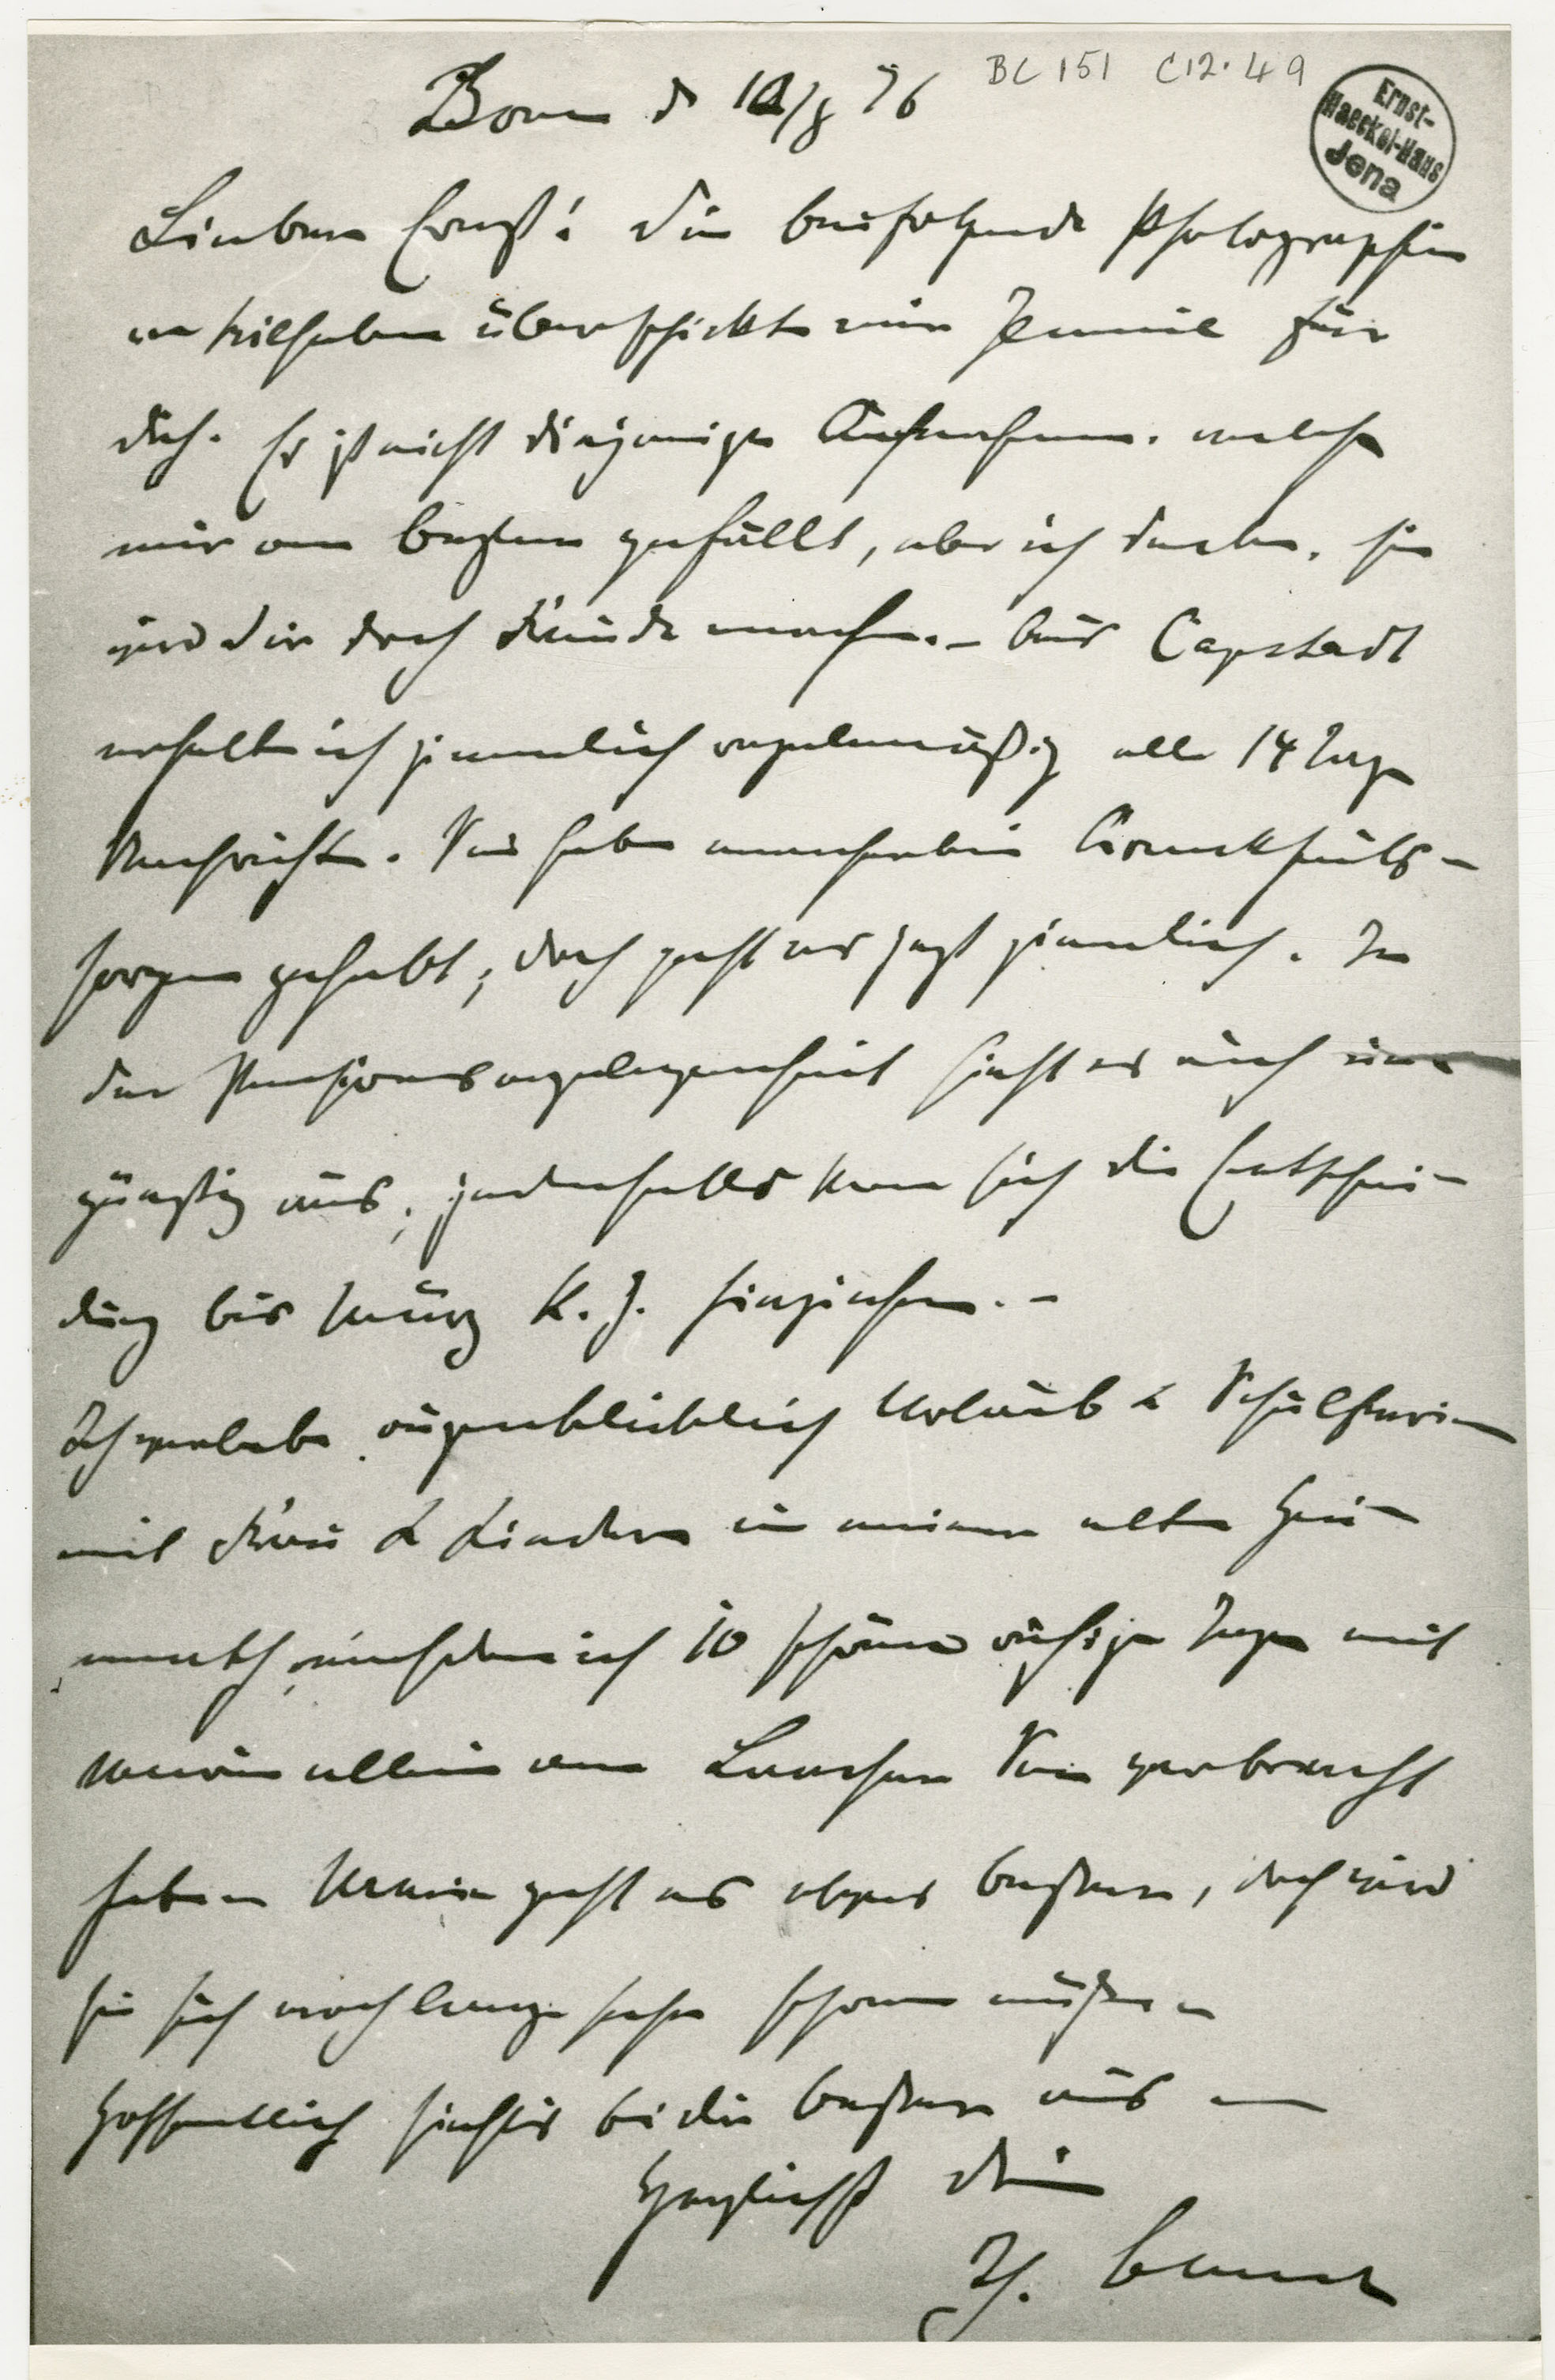 BC 151 C12.49
Ernst-
Haeckel-Haus
Jena
Bonn d 12/8 76
Lieber Ernst! Die beifolgende Photographie
Wilhelms überschickte mir Jemmie für
dich. Es ist nicht diejenige Aufnahme, welche
mir am besten gefällt, aber ich denke, sie
wird dir doch Freude machen. – Aus Capstadt
erhalte ich ziemlich regelmäßig alle 14 Tage
Nachricht. Sie haben mancherlei Krankheits-
sorgen gehabt, doch geht es jetzt ziemlich. In
der Pensionsangelegenheit sieht es auch
günstig aus, jedenfalls kann sich die Entschei-
dung bis März k. J. hinziehen. –
Ich verlebe augenblicklich Urlaub & Schulferien
mit Frau & Kindern in meiner alten Hei-
math, nachdem ich 10 schöne ruhige Tage mit
Marie allein am Laacher See verbracht
habe. Marie geht es etwas besser, doch wird
sie sich noch lange sehr schonen müssen
Hoffentlich siehts bei dir besser aus
Herzlichst dein
Th. Bleek